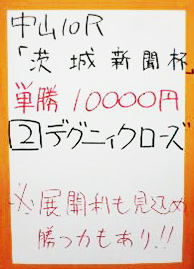 中山10R
「茨城新聞杯」
単勝10000円
2デグニティクローズ
※展開利も見込め
勝つ力もあり!!